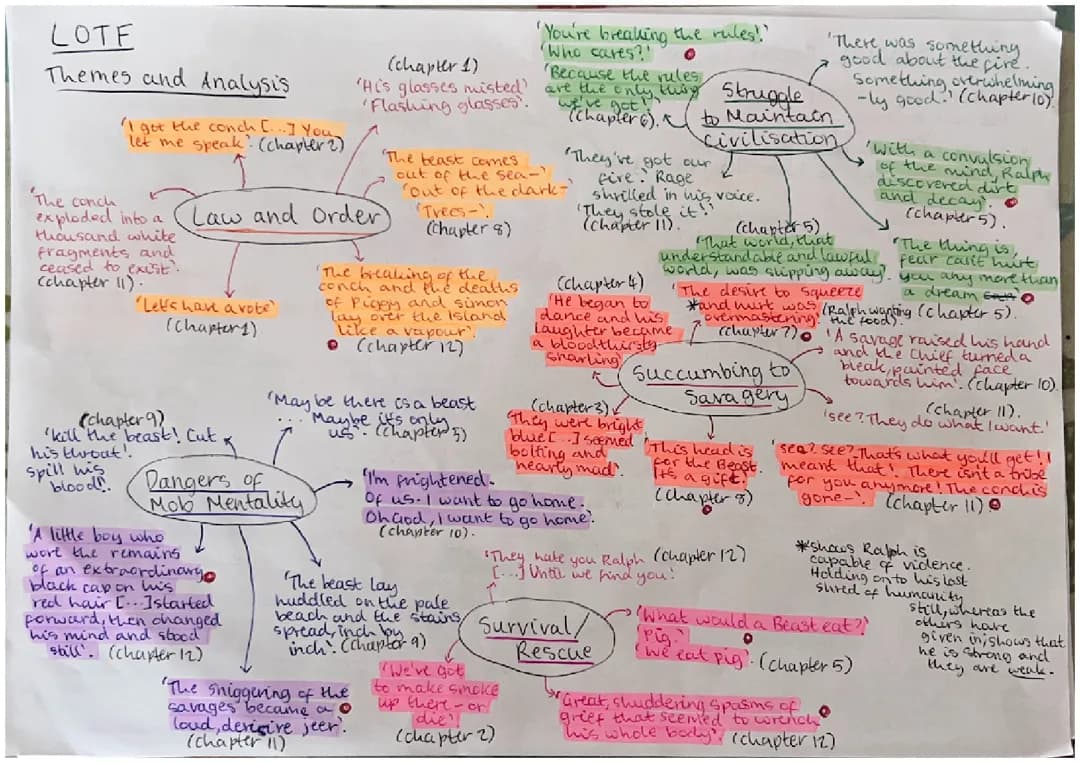 LOTF
Themes and Analysis
(chapter 1)
'His glasses misted'
'Flashing glasses'.
'I got the conch [...] You
let me speak'. (chapter 2)
'The beast comes
out of the sea-'
'Out of the dark-'
'Trees-'.
(chapter 8)
'The conch
exploded into a
thousand white
fragments and
ceased to exist'.
(chapter 11).
Law and Order
'Let's have a vote'
(chapter 1)
'The breaking of the
conch and the deaths
of Piggy and Simon
lay over the Island
like a vapour'.
(chapter 12)
'You're breaking the rules!'
'Who cares?'
'Because the rules
are the only thing
we've got!'
(chapter 6).
Struggle
to Maintain
Civilisation
'There was something
good about the fire.
Something overwhelming
-ly good.' (chapter 10).
'They've got our
fire'. Rage
shrilled in his voice.
'They stole it!'
(chapter 11).
'With a convulsion
of the mind, Ralph
discovered dirt
and decay'.
(chapter 5).
(chapter 5)
'That world, that
understandable and lawful
world, was slipping away'.
'The thing is,
fear can't hurt
you any more than
a dream
(chapter 5).
(chapter 4)
'He began to
dance and his
laughter became
a bloodthirsty
snarling'
'The desire to squeeze
*and hurt was
overmastering'. (Ralph wanting
the food).
(chapter 7)
Succumbing to
Savagery
'A savage raised his hand
and the Chief turned a
bleak, painted face
towards him'. (chapter 10).
(chapter 11).
'See? They do what I want.'
(chapter 3)
'They were bright
blue [...] seemed
bolting and
nearly mad'.
'This head is
for the Beast.
It's a gift'.
(chapter 8)
'See? See? That's what you'll get! I
meant that! There isn't a tribe
for you anymore! The conch is
gone-' (chapter 11)
(chapter 9)
'Kill the beast! Cut
his throat!
Spill his
blood!'.
'Maybe there is a beast
... Maybe it's only
us'. (chapter 5)
Dangers of
Mob Mentality
'I'm frightened.
Of us. I want to go home.
Oh God, I want to go home'.
(chapter 10).
'A little boy who
wore the remains
of an extraordinary
black cap on his
red hair [...] started
forward, then changed
his mind and stood
still'. (chapter 12)
'The beast lay
huddled on the pale
beach and the stains
spread, inch by
inch'. (chapter 9)
'The sniggering of the
savages became a
loud, derisive jeer'.
(chapter 11)
'They hate you Ralph (chapter 12)
[...] Until we find you'.
Survival/
Rescue
'What would a Beast eat?'
'Pig.'
'We eat pig'. (chapter 5)
'We've got
to make smoke
up there - or
die'.
(chapter 2)
'Great, shuddering spasms of
grief that seemed to wrench
his whole body'. (chapter 12)
*shows Ralph is
capable of violence.
Holding on to his last
shred of humanity
still, whereas the
others have
given in; shows that
he is strong and
they are weak.